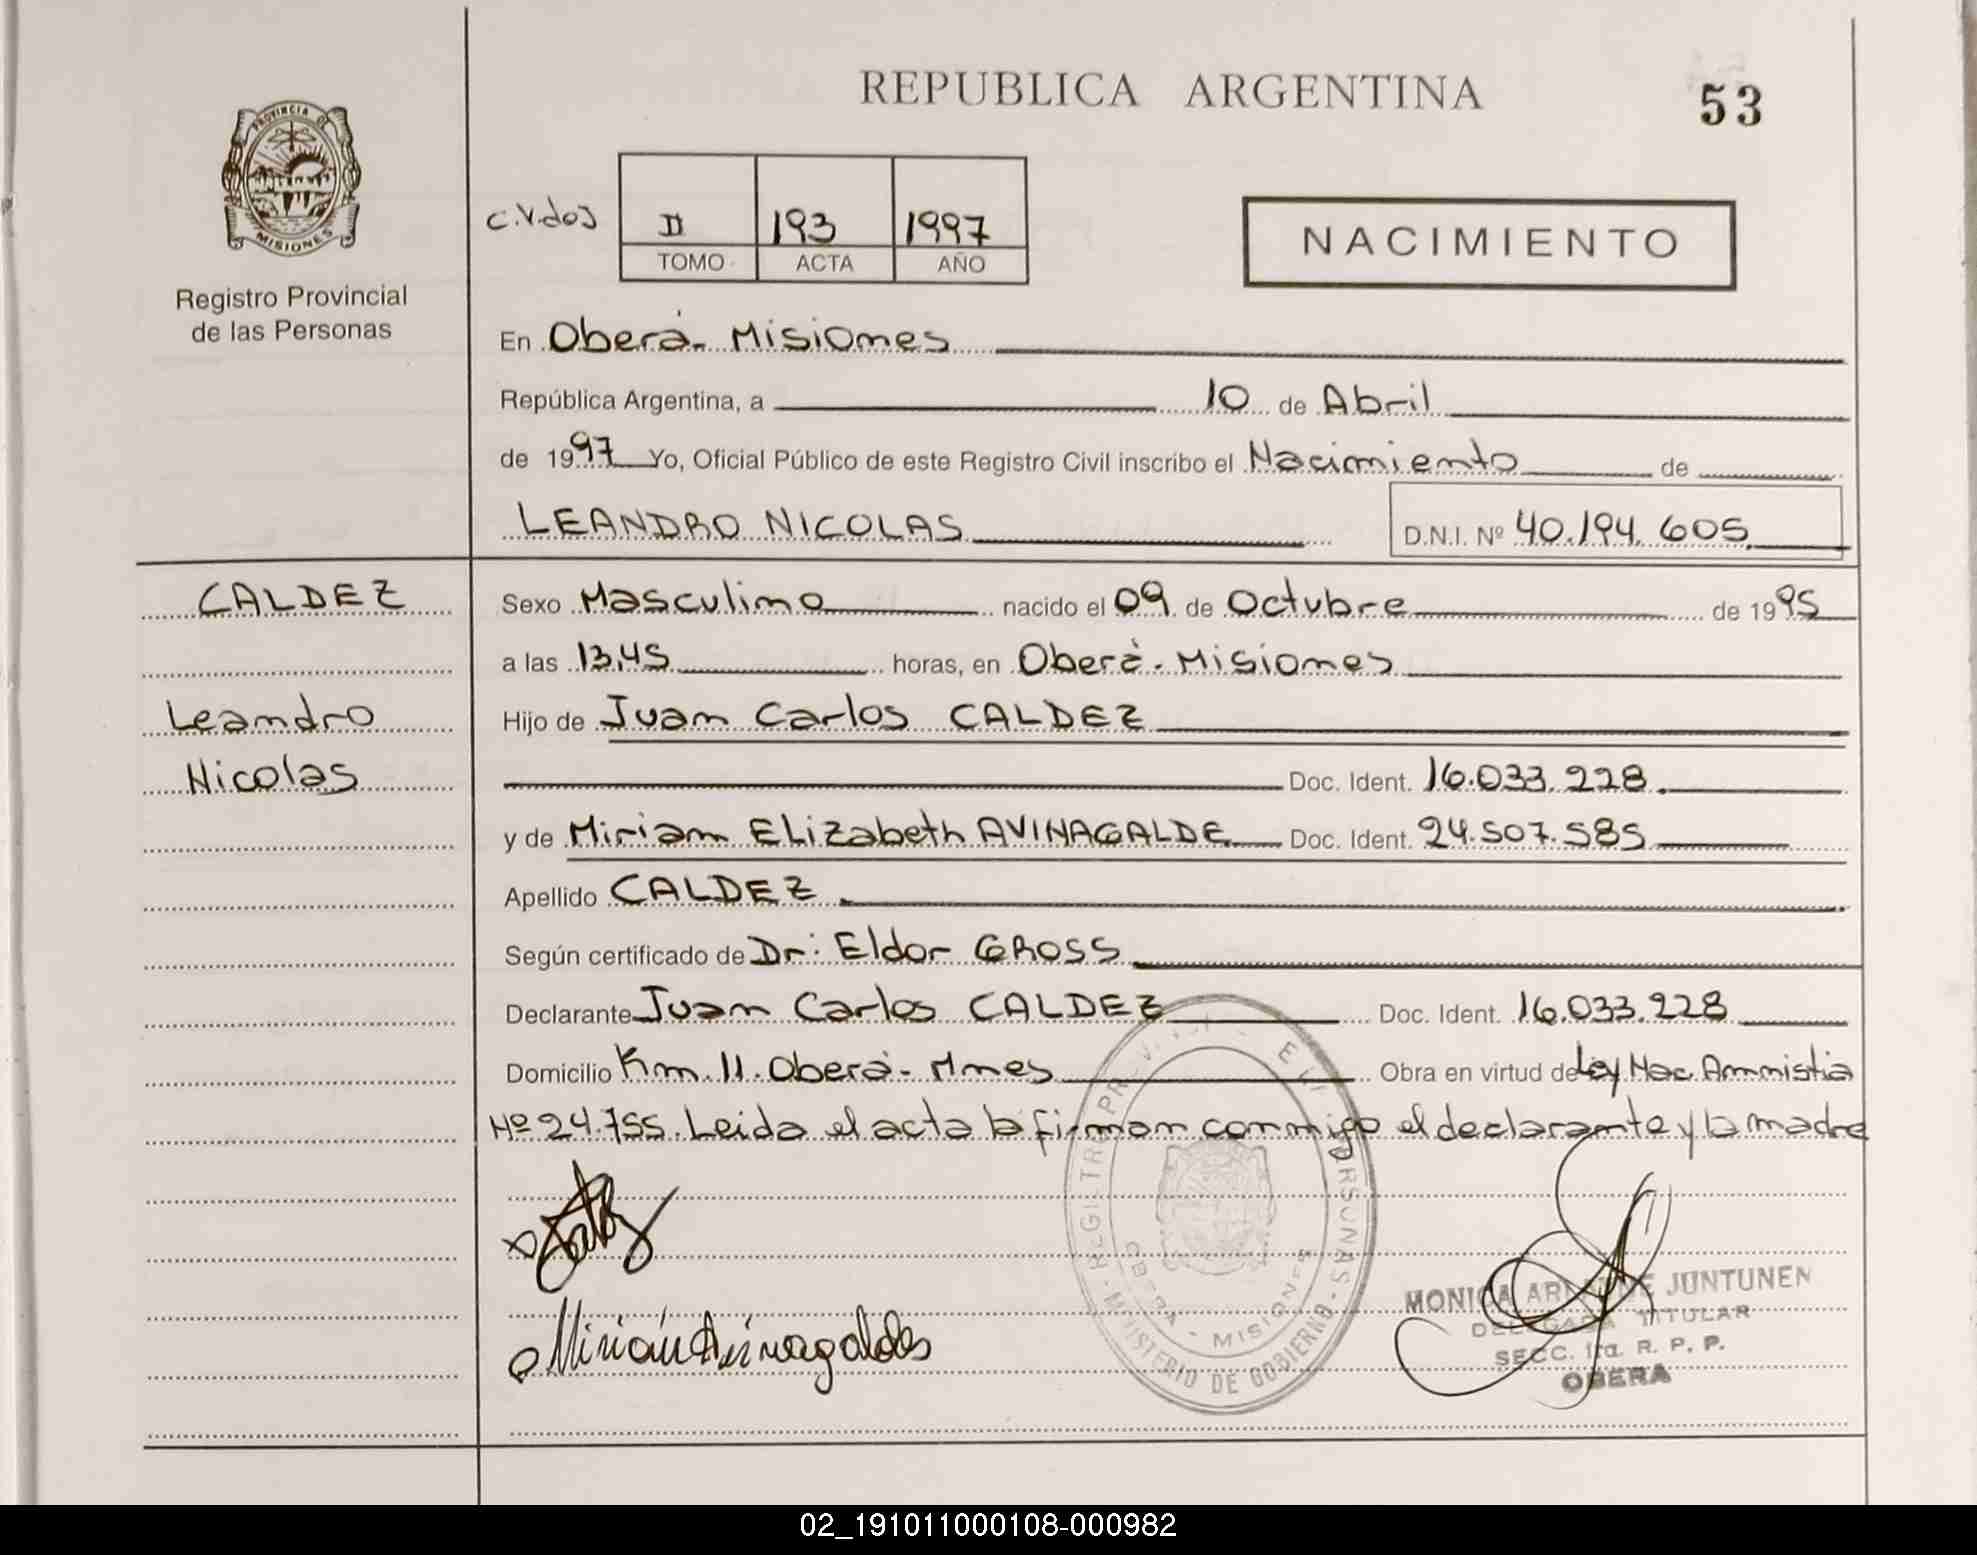 REPUBLICA ARGENTINA
53
PROVINCIA DE
MISIONES
Registro Provincial
de las Personas
C.V.dos
II 193 1997
TOMO ACTA AÑO
NACIMIENTO
En Oberá - Misiones
República Argentina, a 10 de Abril
de 1997 Yo, Oficial Público de este Registro Civil inscribo el Nacimiento de
LEANDRO NICOLAS D.N.I. Nº 40.194.605
CALDEZ
Sexo Masculino nacido el 09 de Octubre de 1995
a las 13,45 horas, en Oberá - Misiones
Leandro
Hijo de Juan Carlos CALDEZ
Nicolas
Doc. Ident. 16.033.228.
y de Miriam ELizabeth AVINAGALDE Doc. Ident. 24.507.585
Apellido CALDEZ
Según certificado de Dr: Eldor GROSS
Declarante Juan Carlos CALDEZ Doc. Ident. 16.033.228
Domicilio Km. 11. Oberá - Mnes Obra en virtud de Ley Nac. Ammistia
Nº 24.755. Leida el acta la firman conmigo el declarante y la madre
MINISTERIO DE GOBIERNO
OBERA - MISIONES
MONICA JUNTUNEN
DELEGADA TITULAR
SECC. 1ra. R. P. P.
OBERA
02_191011000108-000982